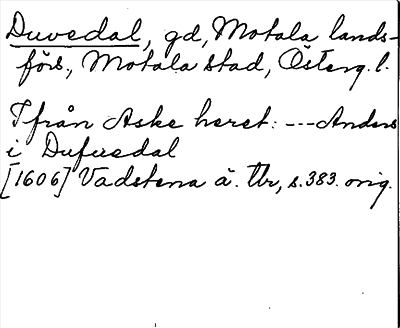 Duvedal, gd, Motala lands-
förs., Motala stad, Österg. l.
Ifrån Aske heret: --- Anders
i Dufuedal
[1606] Vadstena ä. Tlr, s. 383. orig.